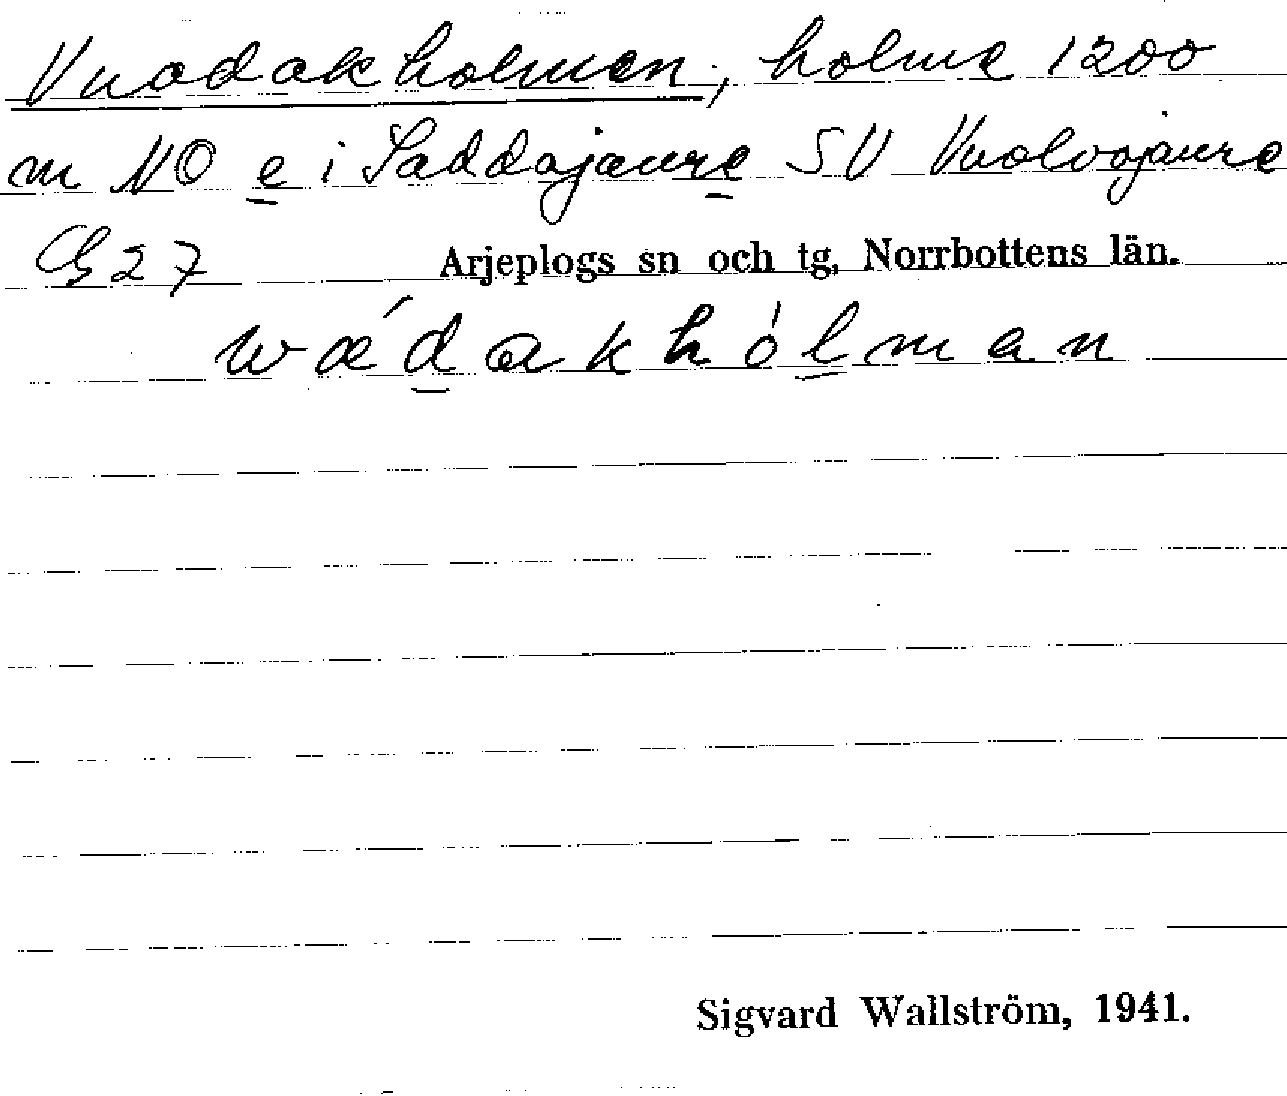 Vuodakholmen, holme 1200
m NO e i Saddajaure SV Vuolvojaure
G 27 Arjeplogs sn och tg, Norrbottens län.
wǽdakhólman
Sigvard Wallström, 1941.